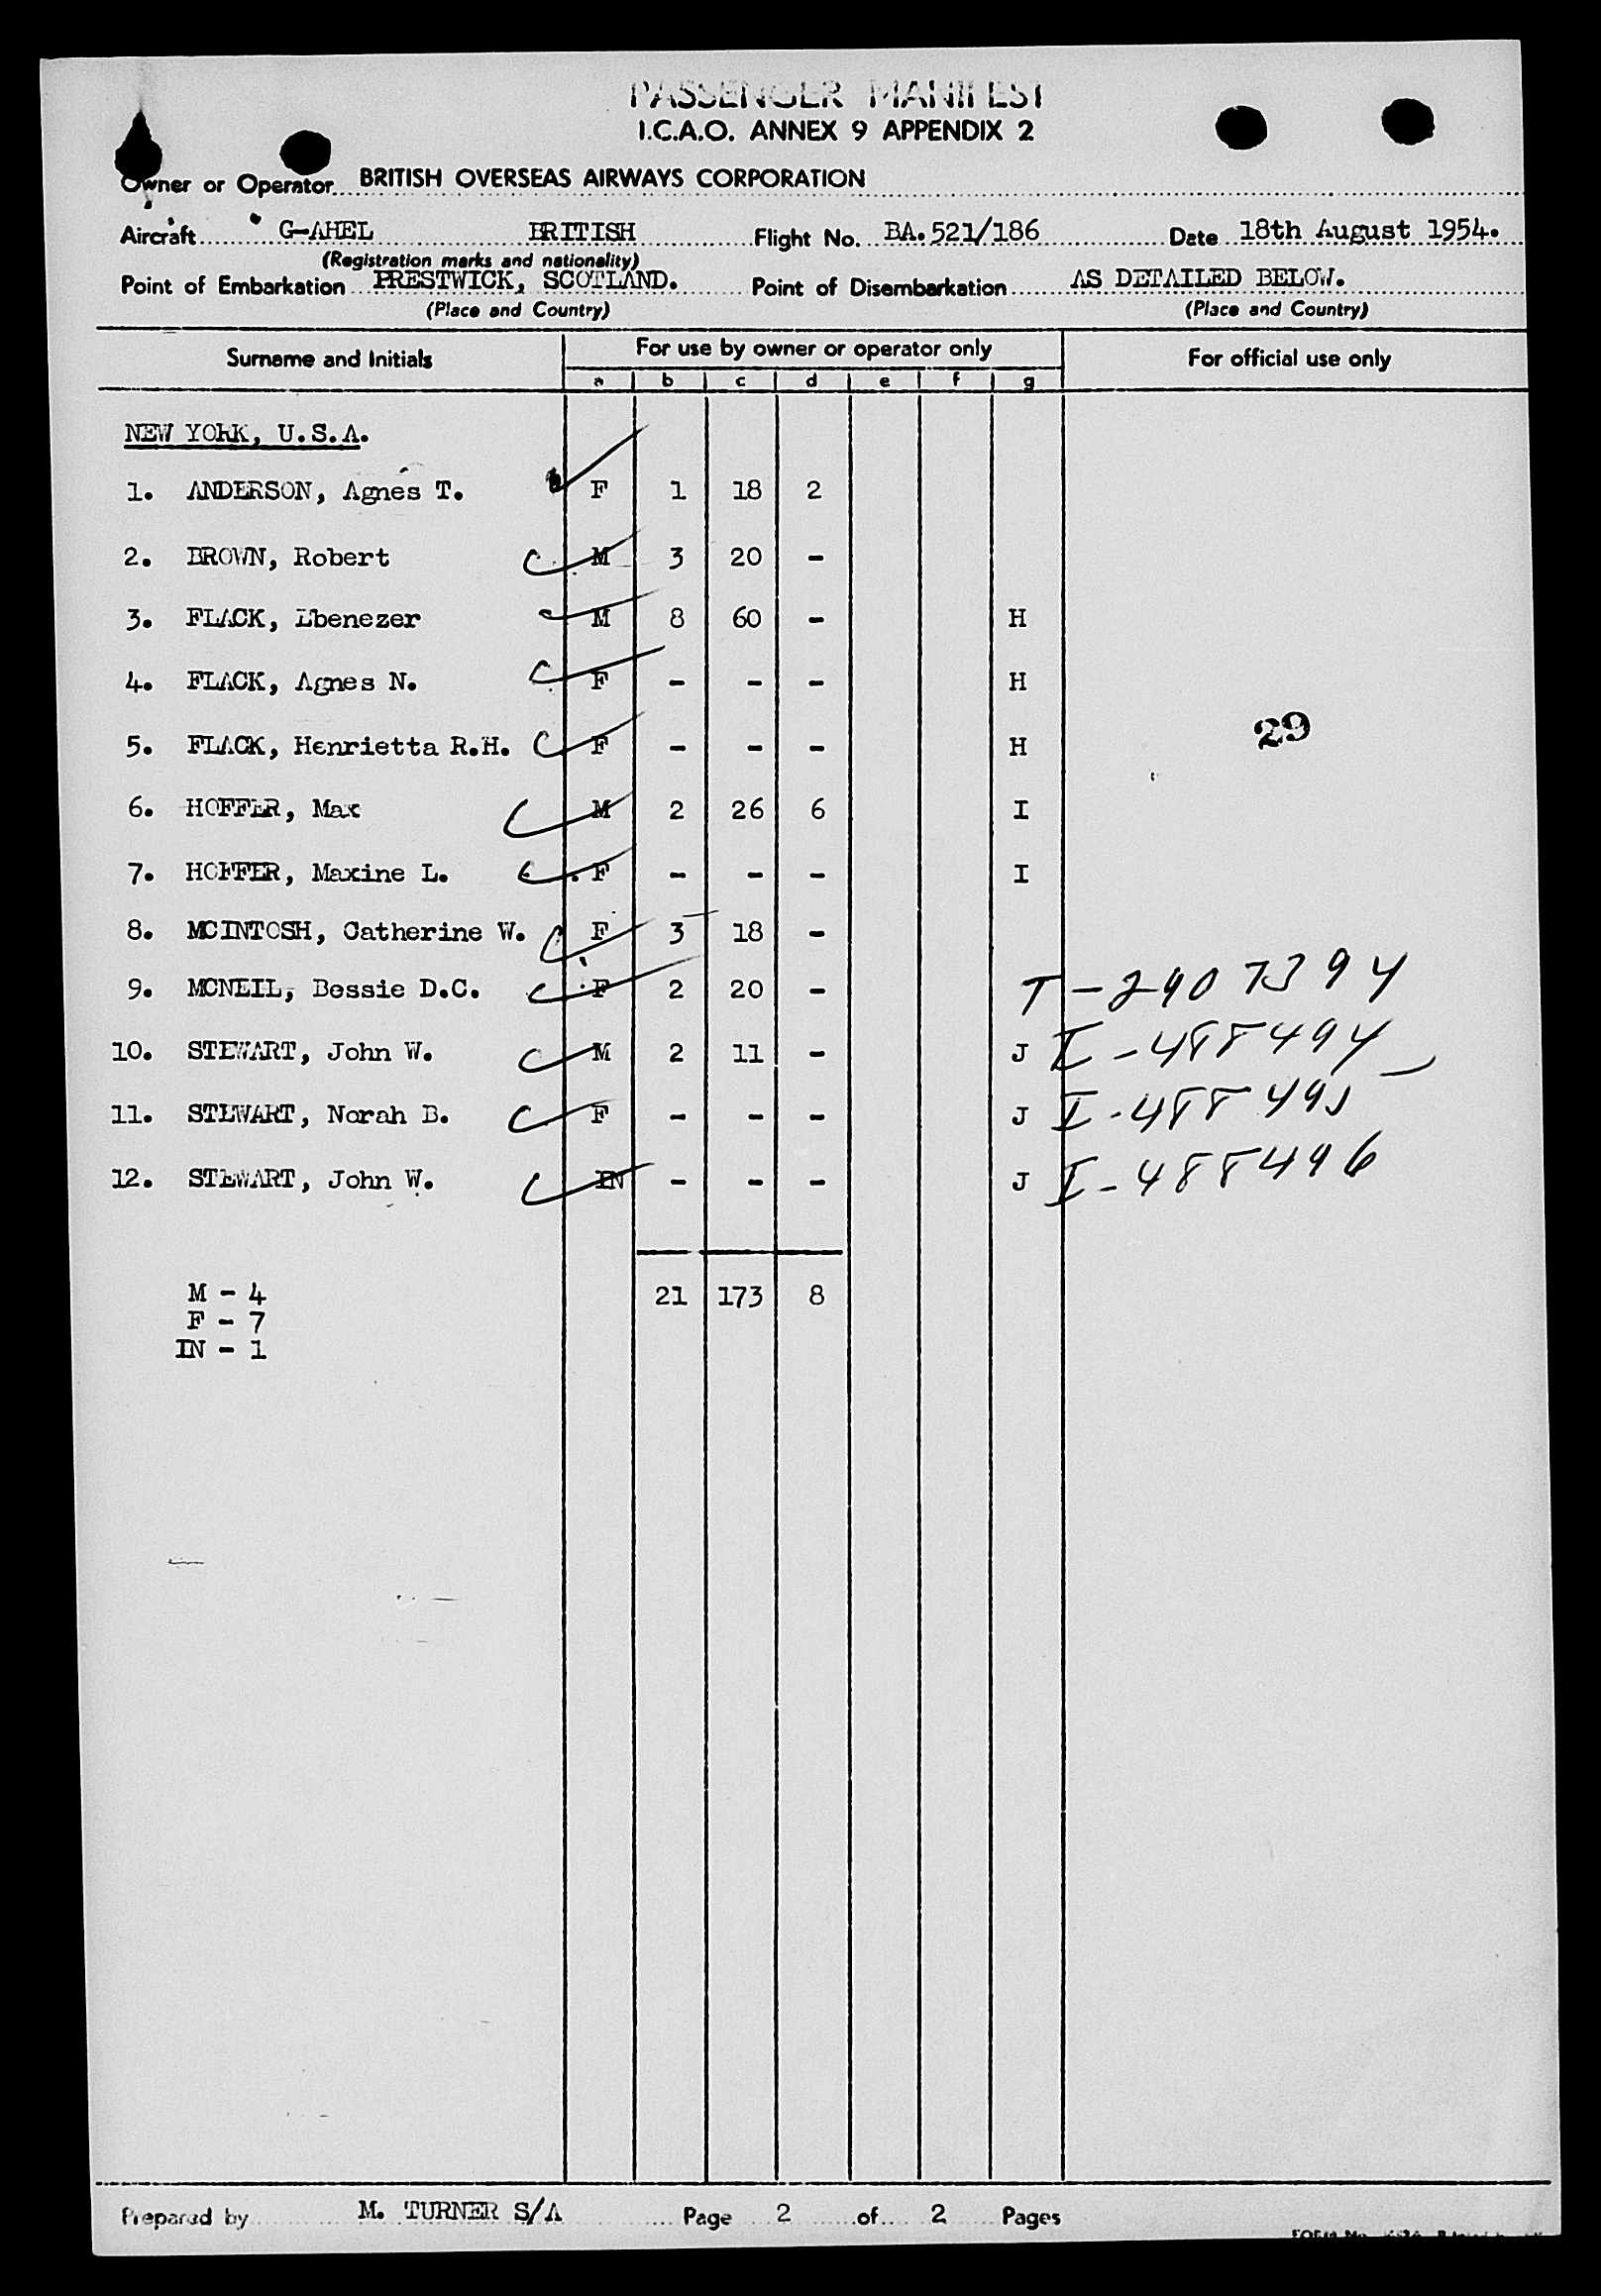 PASSENGER MANIFEST
I.C.A.O. ANNEX 9 APPENDIX 2
Owner or Operator BRITISH OVERSEAS AIRWAYS CORPORATION
Aircraft G-AHEL BRITISH Flight No. BA.521/186 Date 18th August 1954.
(Registration marks and nationality)
Point of Embarkation PRESTWICK, SCOTLAND. Point of Disembarkation AS DETAILED BELOW.
(Place and Country) (Place and Country)
Surname and Initials For use by owner or operator only For official use only
a b c d e f g
NEW YORK, U.S.A.
1. ANDERSON, Agnes T. F 1 18 2
2. BROWN, Robert M 3 20 -
3. FLACK, Ebenezer M 8 60 - H
4. FLACK, Agnes N. F - - - H
5. FLACK, Henrietta R.H. F - - - H
29
6. HOFFER, Max M 2 26 6 I
7. HOFFER, Maxine L. F - - - I
8. MCINTOSH, Catherine W. F 3 18 -
9. MCNEIL, Bessie D.C. F 2 20 - T-2907394
10. STEWART, John W. M 2 11 - J I-488494
11. STEWART, Norah B. F - - - J I-488495
12. STEWART, John W. IN - - - J I-488496
M - 4 21 173 8
F - 7
IN - 1
Prepared by M. TURNER S/A Page 2 of 2 Pages